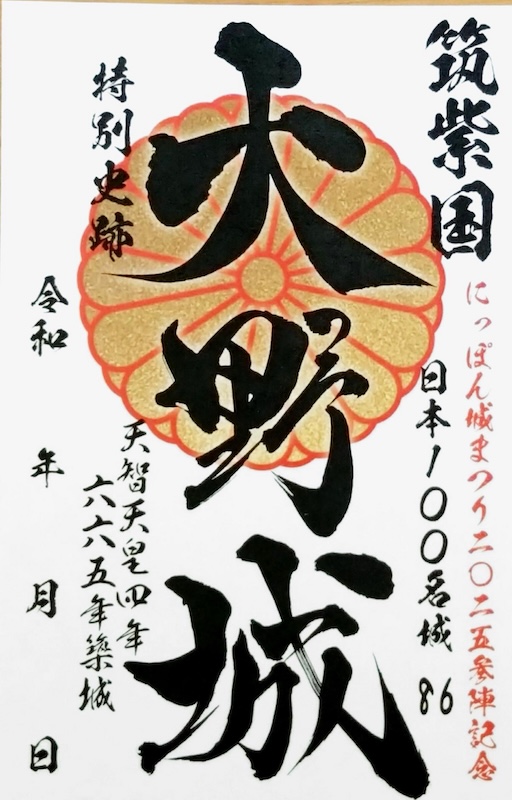 筑紫国
にっぽん城まつり二〇二五参陣記念
日本100名城 86
大野城
特別史跡
天智天皇四年
六六五年築城
令和 年 月 日